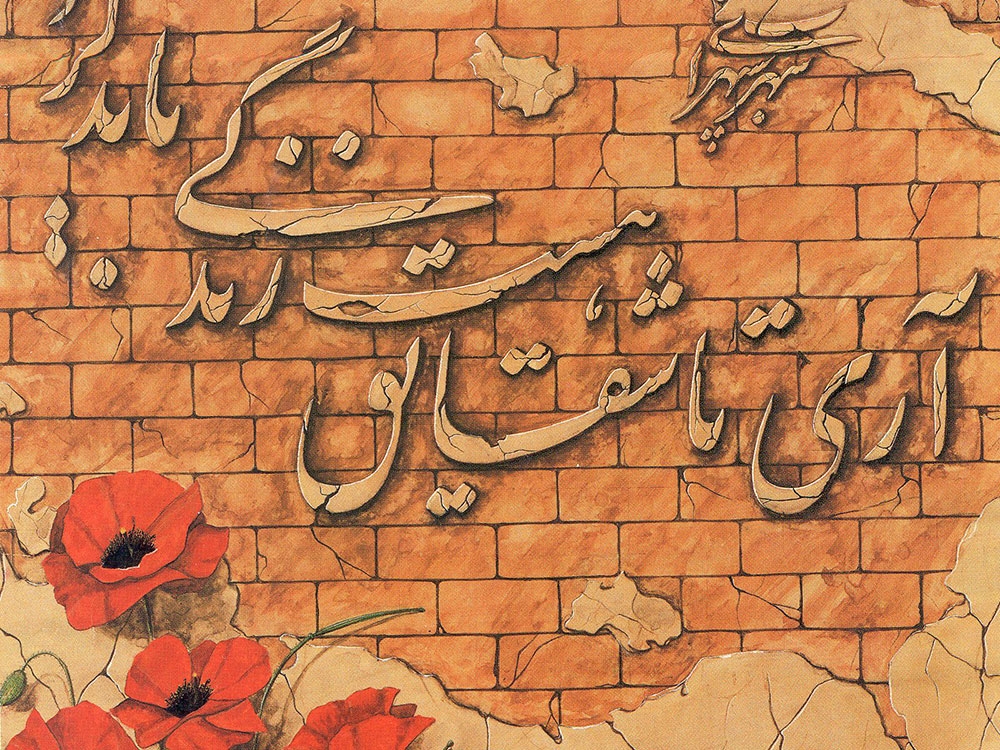 آری تا شقایق هست
زندگی باید کرد
سهراب سپهری